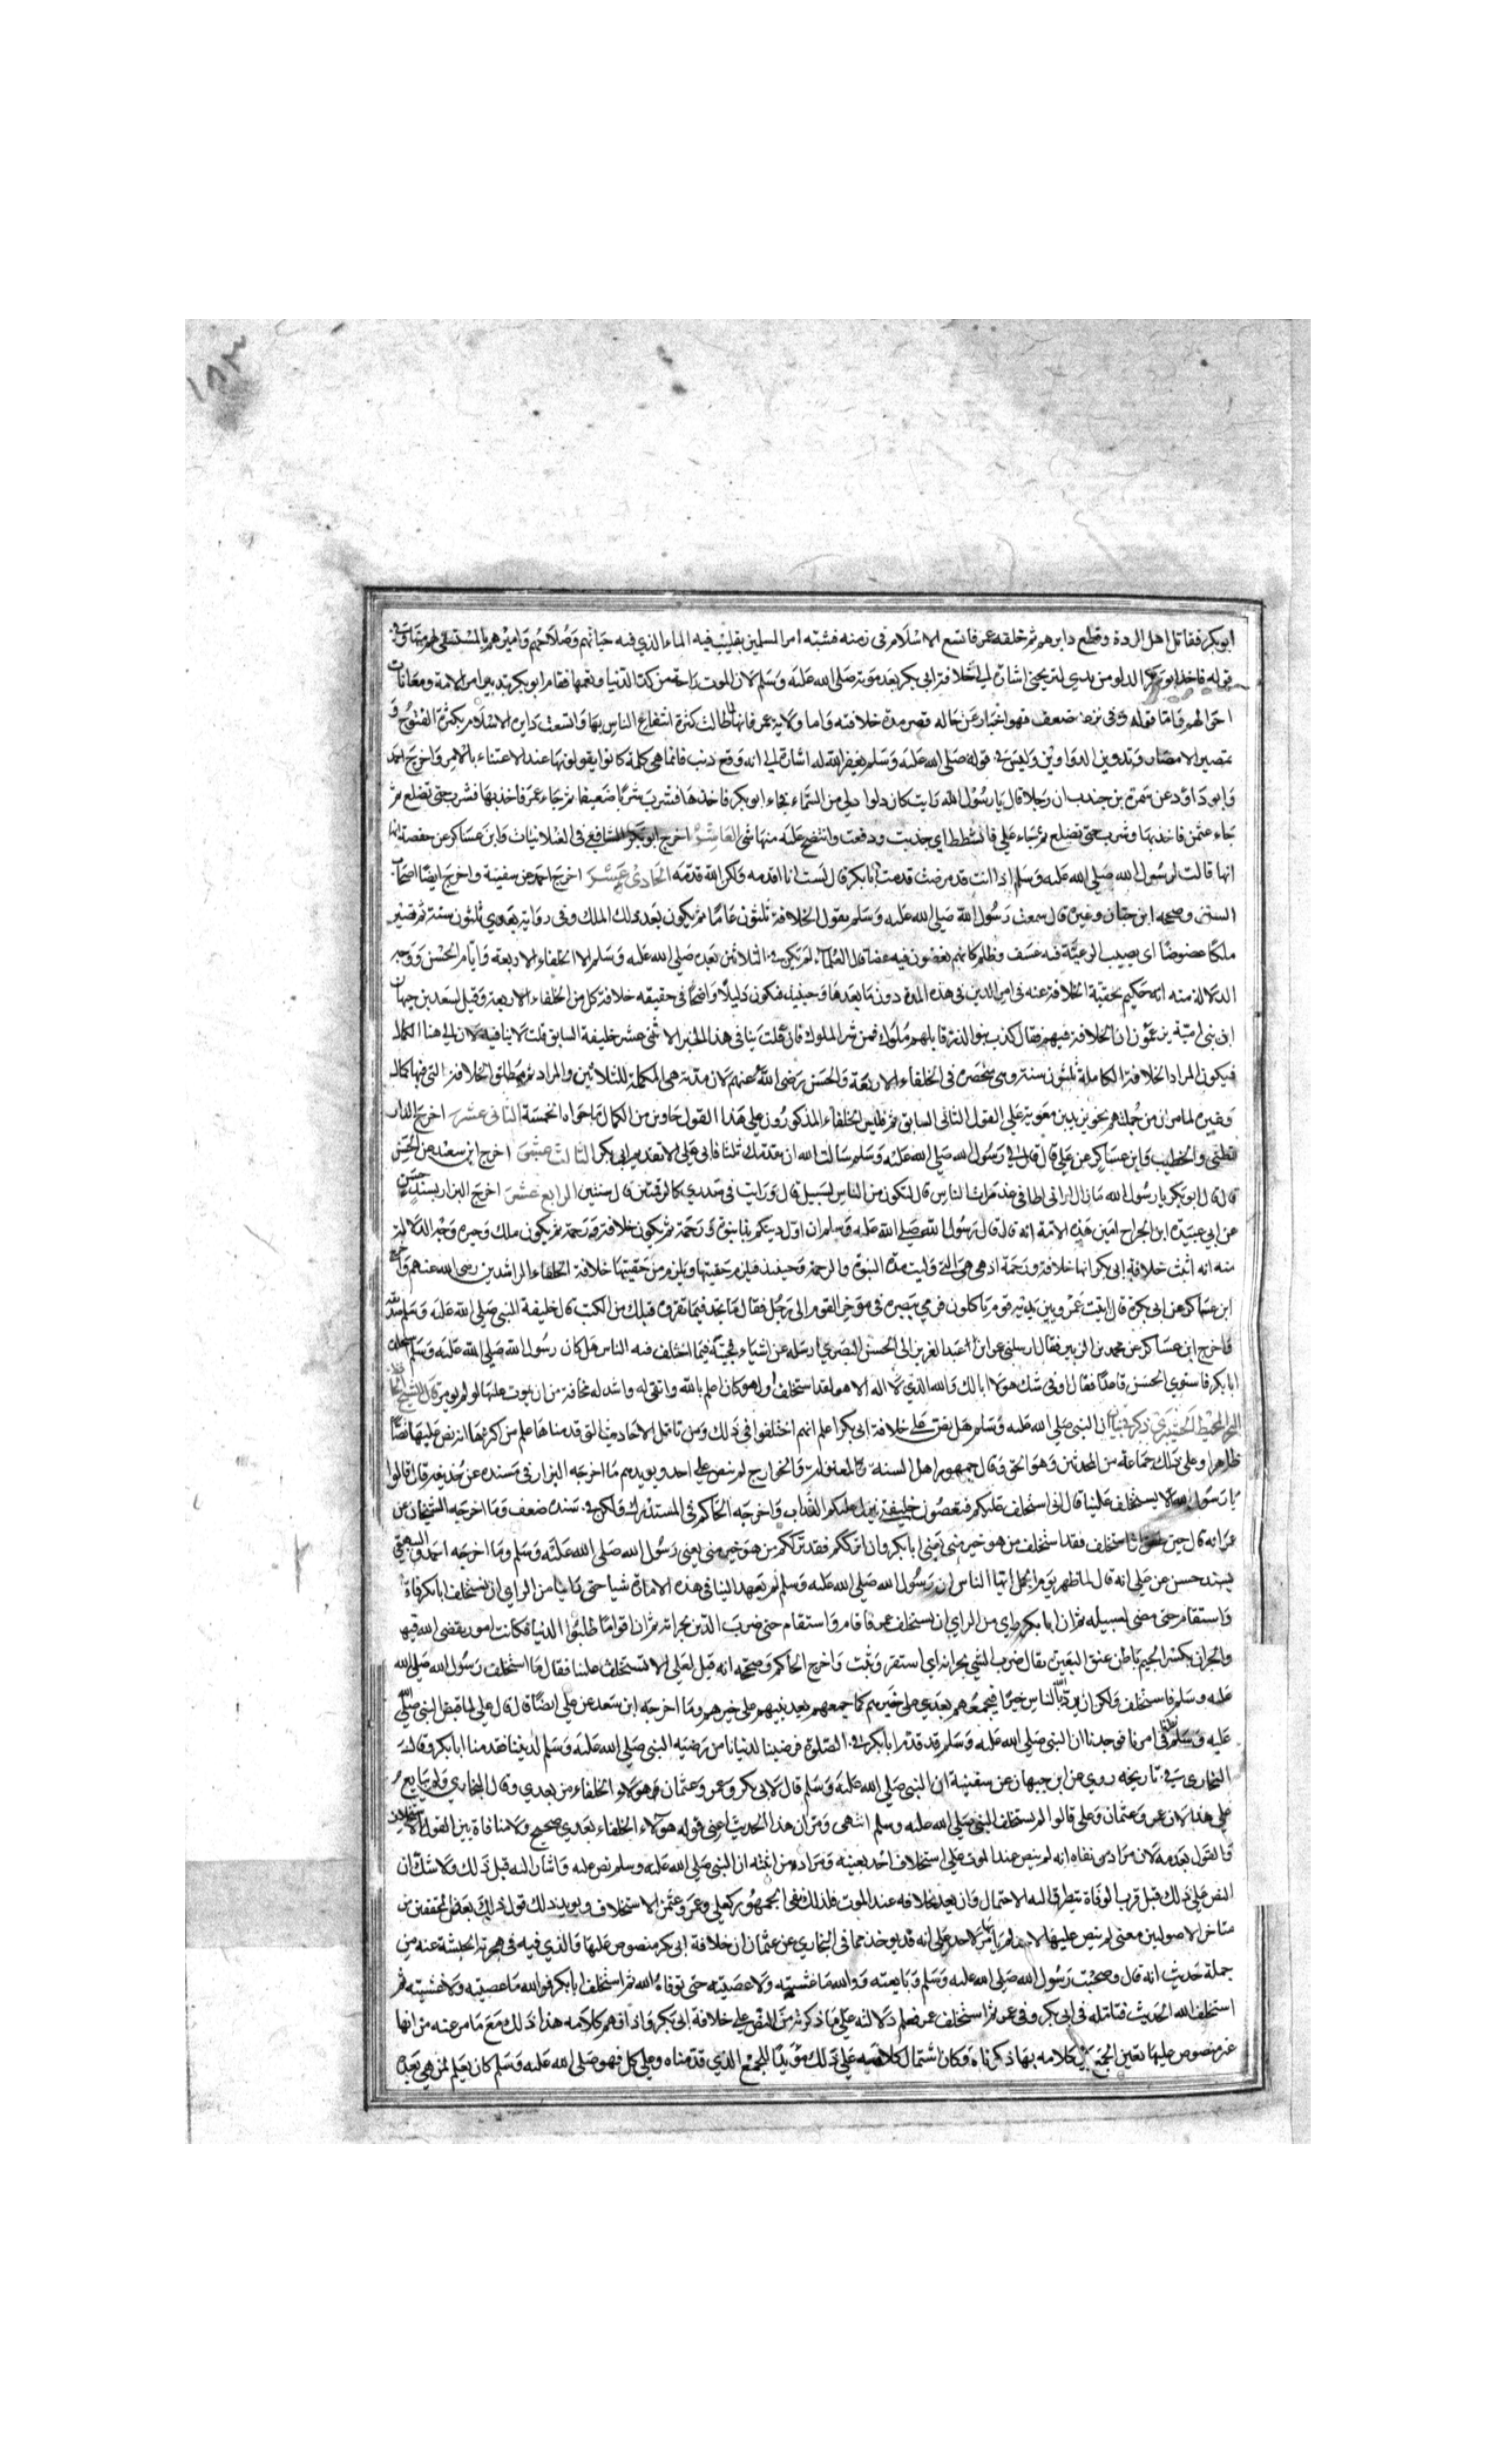 ١٨٣
ابو بكر فقاتل اهل الردة وقطع دابرهم ثم خلفه عمر فاتسع الاسلام فى زمنه فشبه امر المسلمين بقليب فيه الماء الذي فيه حياتهم وصلاحهم واميرهم بالمستقي لهم منها وفي
قوله فاخذ ابو بكر الدلو من يدي ليريحني اشارة الي خلافة ابي بكر بعد موته صلى الله عليه وسلم لان الموت راحة من كد الدنيا وتعبها فقام ابو بكر بتدبير امر الامة ومعاناة
احوالهم واما قوله وفى نزعه ضعف فهو اخبار عن حاله فى قصر مدة خلافته واما ولاية عمر فانها لما طالت كثرة انتفاع الناس بها واتسعت دايرة الاسلام بكثرة الفتوح و
تمصير الامصار وتدوين الدواوين وليس في قوله صلى الله عليه وسلم يغفر الله له اشارة الي انه وقع ذنب فانما هي كلمة كانوا يقولونها عند الاعتناء بالامر واخرج احمد
وابو داود عن سمرة بن جندب ان رجلا قال يا رسول الله رايت كان دلوا دلي من السماء فجاء ابو بكر فاخذها فشرب شربا ضعيفا ثم جاء عمر فاخذ بها فشرب حتي تضلع ثم
جاء عثمن فاخذ بها وشرب حتي تضلع ثم جاء علي فانتشطت اي جذبت ودفعت وانتضح عليه منها شي العاشر اخرج ابو بكر الشافعي فى الغلانيات وابن عساكر عن حفصة
انها قالت لرسول الله صلي الله عليه وسلم اذا انت قد مرضت قدمت ابا بكر قال لست انا اقدمه ولكن الله قدمه الحادي عشر اخرج احمد عن سفينة واخرج ايضا اصحاب
السنن وصححه ابن حبان وغيره قال سمعت رسول الله صلي الله عليه وسلم يقول الخلافة ثلثون عاما ثم يكون بعد ذلك الملك وفى رواية بعدي ثلثون سنة ثم تصير
ملكا عضوضا اى يصيب الرعية فيه عسف وظلم كانهم يعضون فيه عضا قال العلماء لم يكن في الثلاثين بعده صلي الله عليه وسلم الا الخلفاء الاربعة وايام الحسن ووجه
الدلالة منه انه حكم بحقية الخلافة عنه فى امر الدين فى هذه المدة دون ما بعدها وحينئذ فيكون دليلا واضحا فى حقيقة خلافة كل من الخلفاء الاربعة وقيل لسعيد بن جهان
ان بنى امية يزعمون ان الخلافة فيهم فقال كذب بنو الزرقا بل هم ملوك فمن شر الملوك فان قلت ينافى هذا الخبر الاثنى عشر خليفة السابق قلت لا ينافيه لان ال هنا للكمال
فيكون المراد الخلافة الكاملة ثلثون سنة وهى منحصرة فى الخلفاء الاربعة والحسن رضى الله عنهم لان مدته هى المكملة للثلاثين والمراد ثم مطلق الخلافة التى فيها كمال
وغيره لما مر ان من جملتهم نحو يزيد بن معوية وعلي القول الثانى السابق ثم فليس الخلفاء المذكورون على هذا القول حاوين من الكمال ما حواه الخمسة الثانى عشر اخرج الدار
قطنى والخطيب وابن عساكر عن علي قال قال لي رسول الله صلي الله عليه وسلم سالت الله ان يقدمك ثلثا فابى علي الا تقديم ابى بكر الثالث عشر اخرج ابن سعد عن الحسن
قال قال ابو بكر يا رسول الله ما ازال ارانى اطا فى عذرات الناس قال لتكونن من الناس بسبيل قال ورايت فى صدري كالرقمتين قال سنتين الرابع عشر اخرج البزار بسند حسن
عن ابي عبيدة ابن الجراح امين هذه الامة انه قال قال رسول الله صلي الله عليه وسلم ان اول دينكم بدا نبوة ورحمة ثم يكون خلافة ورحمة ثم يكون ملك وجبره وجه الدلالة
منه انه اثبت خلافة ابى بكر انها خلافة ورحمة اذ هي هي التي وليت مدة النبوة والرحمة وحينئذ فيلزم حقيتها ويلزم من حقيتها خلافة الخلفاء الراشدين رضى الله عنهم واخرج
ابن عساكر عن ابى بكرة قال اتيت عمر وبين يديه قوم ياكلون فرمي ببصره فى موخر القوم الى رجل فقال ما تجد فيما تقروه قبلك من الكتب قال خليفة النبى صلي الله عليه وسلم صديقه
فاخرج ابن عساكر عن محمد بن الزبير فقال ارسلنى عمر ابن عبد العزيز الى الحسن البصري اسئله عن اشياء فجئته فيما اختلف فيه الناس هل كان رسول الله صلى الله عليه وسلم استخلف
ابا بكر فاستوي الحسن قاعدا فقال اوفى شك هو لا ابا لك والله الذي لا اله الا هو لقد استخلفه ولهو كان اعلم بالله واتقى له واشد له مخافة من ان يموت عليها لو لم يومره قال الشيخ
ان النبي صلى الله عليه وسلم هل نص علي خلافة ابى بكر اعلم انهم اختلفوا فى ذلك ومن تامل الاحاديث التى قدمناها علم من اكثرها انه نص عليها نصا
ظاهرا وعلى ذلك جماعة من المحدثين وهو الحق وقال جمهور اهل السنة والمعتزلة والخوارج لم ينص علي احد ويويدهم ما اخرجه البزار فى مسنده عن حذيفة قال قالوا
يا رسول الله الا تستخلف علينا قال انى استخلف عليكم فتعصون خليفتي ينزل عليكم العذاب واخرجه الحاكم فى المستدرك ولكن في سنده ضعف وما اخرجه الشيخان عن
عمر انه قال حين طعن ان استخلف فقد استخلف من هو خير منى يعنى ابا بكر وان اترككم فقد ترككم من هو خير منى يعنى رسول الله صلى الله عليه وسلم وما اخرجه احمد والبيهقي
بسند حسن عن علي انه قال لما ظهر يوم الجمل ايها الناس ان رسول الله صلي الله عليه وسلم لم يعهد الينا فى هذه الامارة شيا حتى راينا من الراي ان نستخلف ابا بكر فاقام
واستقام حتي مضى لسبيله ثم ان ابا بكر راي من الراي ان يستخلف عمر فاقام واستقام حتى ضرب الدين بجرانه ثم ان اقواما طلبوا الدنيا فكانت امور يقضى الله فيها
والجران بكسر الجيم باطن عنق البعير يقال ضرب الشي بجرانه اي استقر وثبت واخرج الحاكم وصححه انه قيل لعلي الا تستخلف علينا فقال ما استخلف رسول الله صلي الله
عليه وسلم فاستخلف ولكن ان يرد الله بالناس خيرا فيجمعهم بعدي على خيرهم كما جمعهم بعد نبيهم على خيرهم وما اخرجه ابن سعد عن علي ايضا قال قال علي لما قبض النبى صلي الله
عليه وسلم نظرنا فى امرنا فوجدنا ان النبى صلي الله عليه وسلم قد قدم ابا بكر في الصلوة فرضينا لدنيانا من رضيه النبى صلي الله عليه وسلم لديننا فقدمنا ابا بكر وقال
البخارى في تاريخه روي عن ابن جمهان عن سفينة ان النبى صلي الله عليه وسلم قال لابى بكر وعمر وعثمان هولاء الخلفاء من بعدي وقال البخاري ولم يتابع
علي هذا لان عمر وعثمان وعلي قالوا لم يستخلف النبى صلي الله عليه وسلم انتهى ومر ان هذا الحديث اعنى قوله هولاء الخلفاء بعدي صحيح ولا منافاة بين القول بالاستخلاف
والقول بعدمه لان مراد من نفاه انه لم ينص عند الموت علي استخلاف احد بعينه ومراد من اثبته ان النبى صلي الله عليه وسلم نص عليه واشار اليه قبل ذلك ولا شك ان
النص علي ذلك قبل قرب الوفاة يتطرق اليه الاحتمال وان بعد بخلافه عند الموت فلذلك نفى الجمهور كعلي وعمر وعثمن الاستخلاف ويويد ذلك قول بعض المحققين من
متاخرى الاصوليين معنى لم ينص عليها لاحد لم يامر بها لاحد علي انه قد يوخذ مما فى البخاري عن عثمان ان خلافة ابى بكر منصوص عليها والذي فيه فى هجرة الحبشة عنه من
جملة حديث انه قال وصحبت رسول الله صلى الله عليه وسلم وبايعته ووالله ما غششته ولا عصيته حتى توفاه الله ثم استخلف ابا بكر فوالله ما عصيته ولا غششته ثم
استخلف الله الحديث فتامله فى ابى بكر وفى عمر ثم استخلف عمر فعلم دلالته علي ما ذكرته من النص علي خلافة ابى بكر واذا فهم كلامه هذا ذلك مع ما مر عنه من انها
غير منصوص عليها تعين الجمع بين كلامه بما ذكرناه وكان اشتمال كلامه علي ذلك مؤيدا للجمع الذي قدمناه وعلي كل فهو صلى الله عليه وسلم كان يعلم لمن هي بعده